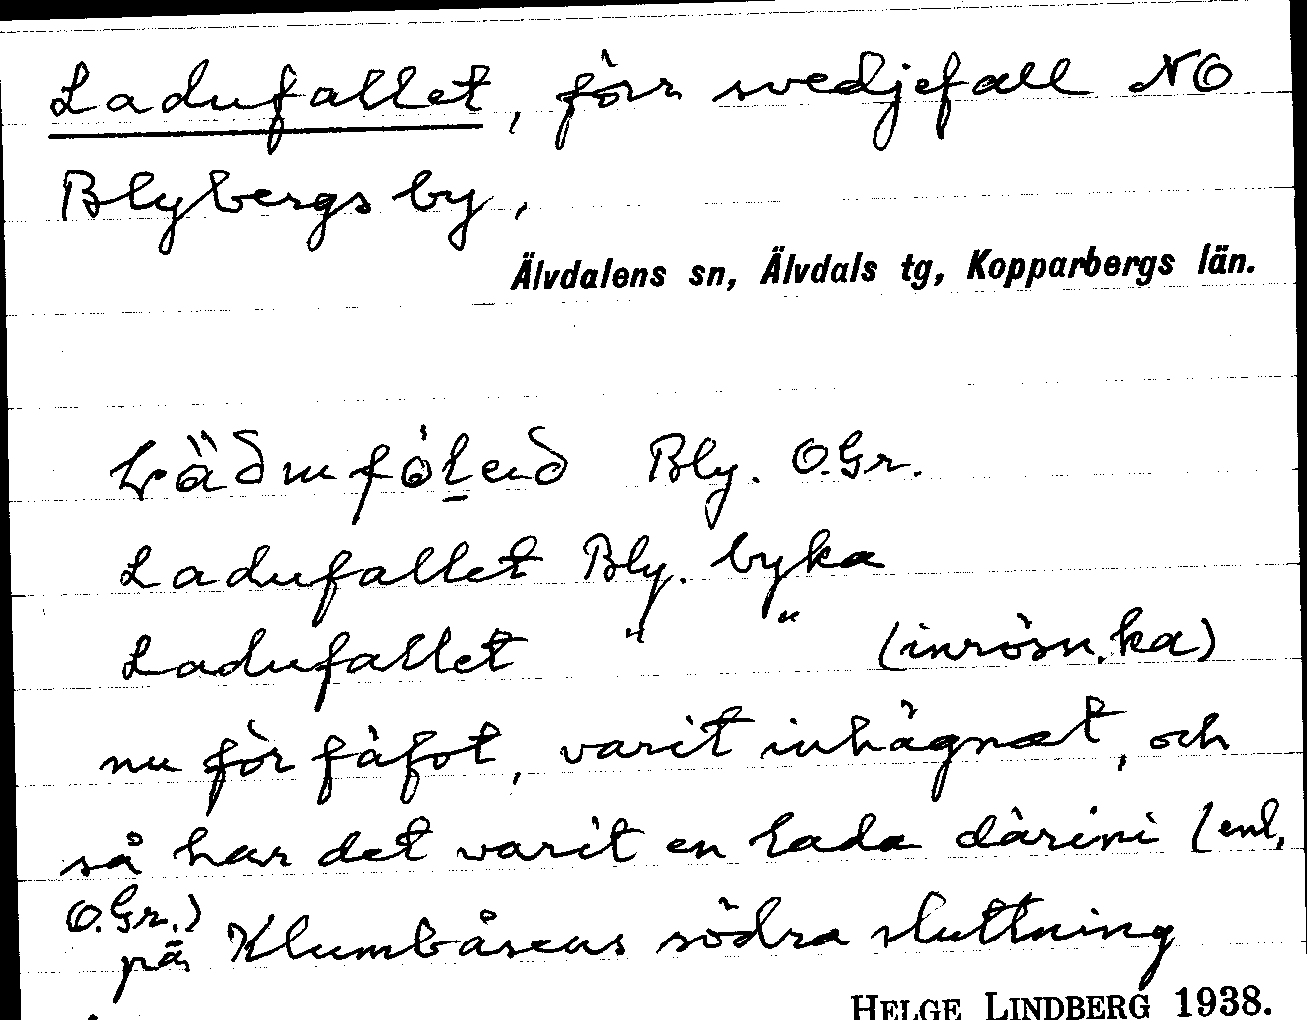 Ladufallet, förr svedjefall NO
Blybergs by,
Älvdalens sn, Älvdals tg, Kopparbergs län.
Bly. O.Gr.
Ladufallet Bly. byka
Ladufallet " " (inrösn.ka)
nu för fäfot, varit inhägnat, och
så har det varit en lada därini (enl.
O.Gr.)
på Klumbåsens södra sluttning
HELGE LINDBERG 1938.